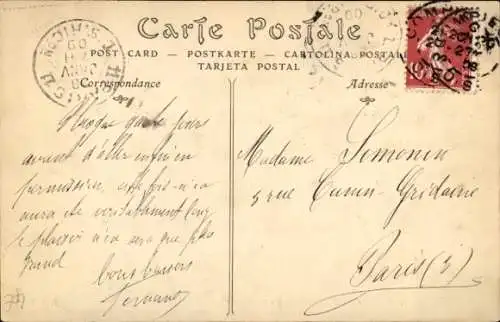 Carte Postale
POST CARD — POSTKARTE — CARTOLINA POSTALE
TARJETA POSTAL
Correspondance
Adresse
que pour
avant d'aller enfin en
permission, cette fois-ci ça
aura été véritablement long
le plaisir n'en sera que plus
grand
Bons baisers
Fernand
Madame Simonin
5 rue Cunin-Gridaine
Paris (3)